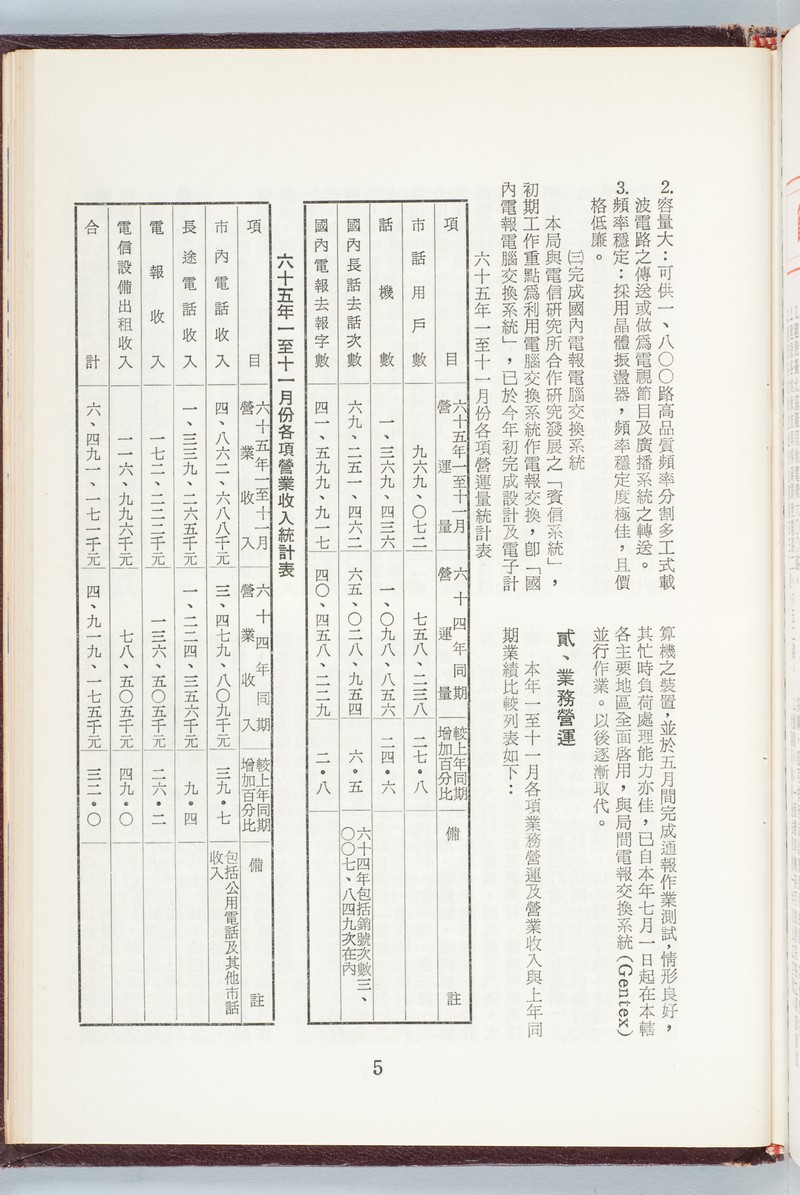 2.容量大：可供一、八〇〇路高品質頻率分割多工式載
波電路之傳送或做爲電視節目及廣播系統之轉送。
3.頻率穩定：採用晶體振盪器，頻率穩定度極佳，且價
格低廉。
㈢完成國內電報電腦交換系統
本局與電信硏究所合作硏究發展之「資信系統」，
初期工作重點爲利用電腦交換系統作電報交換，卽「國
內電報電腦交換系統」，已於今年初完成設計及電子計
算機之裝置，並於五月間完成通報作業測試，情形良好，
其忙時負荷處理能力亦佳，已自本年七月一日起在本轄
各主要地區全面啓用，與局間電報交換系統（Gentex）
並行作業。以後逐漸取代。
貳、業務營運
本年一至十一月各項業務營運及營業收入與上年同
期業績比較列表如下：
六十五年一至十一月份各項營運量統計表
項目
六十五年一至十一月
營運量
六十四年同期
營運量
較上年同期
增加百分比
備註
市話用戶數
九六九、〇七二
七五八、二三八
二七・八
話機數
一、三六九、四三六
一、〇九八、八五六
二四・六
國內長話去話次數
六九、二五一、四六二
六五、〇二八、九五四
六・五
六十四年包括銷號次數三、
〇〇七、八四九次在內
國內電報去報字數
四一、五九九、九一七
四〇、四五八、二二九
二・八
六十五年一至十一月份各項營業收入統計表
項目
六十五年一至十一月
營業收入
六十四年同期
營業收入
較上年同期
增加百分比
備註
市內電話收入
四、八六二、六八八千元
三、四七九、八〇九千元
三九・七
包括公用電話及其他市話
收入
長途電話收入
一、三三九、二六五千元
一、二二四、三五六千元
九・四
電報收入
一七二、二二二千元
一三六、五〇五千元
二六・二
電信設備出租收入
一一六、九九六千元
七八、五〇五千元
四九・〇
合計
六、四九一、一七一千元
四、九一九、一七五千元
三二・〇
5